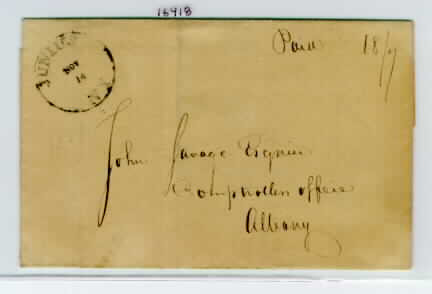 16918
JUNIUS
NOV
14
N.Y
Paid
John Savage Esquire
Comptrollers office
Albany